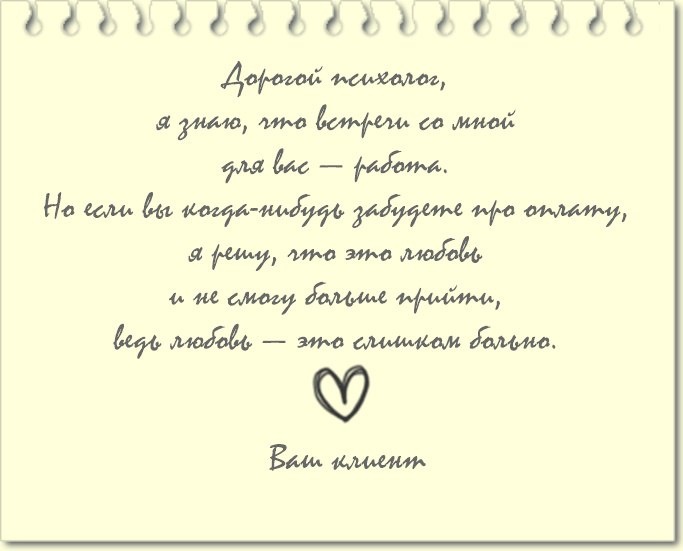 Дорогой психолог,
я знаю, что встречи со мной
для вас — работа.
Но если вы когда-нибудь забудете про оплату,
я решу, что это любовь
и не смогу больше прийти,
ведь любовь — это слишком больно.
Ваш клиент